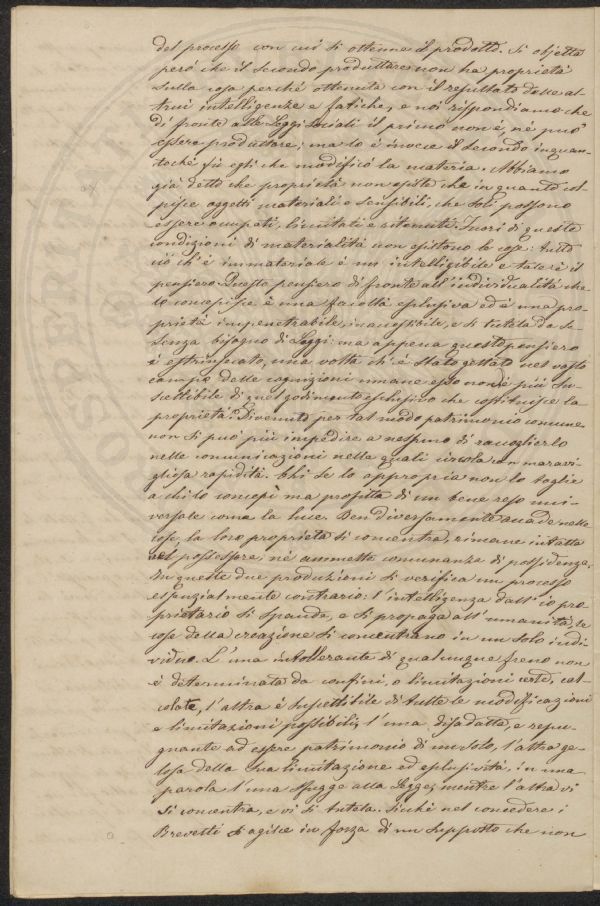 dei processi con cui si ottenne il prodotto. Si objetta
però che il secondo produttore non ha proprietà
sulla cosa perché ottenuta con il resultato delle al-
trui intelligenze e fatiche, e noi rispondiamo che
di fronte alle Leggi Sociali il primo non é, né può
essere produttore; ma lo é invece il secondo inquan-
toché fu egli che modificò la materia. Abbiamo
già detto che proprietà non esiste che in quanto col-
pisce oggetti materiali e sensibili, che soli possono
essere occupati, limitati e ritenuti. Fuori di queste
condizioni di materialità non esistono le cose: tutto
ciò ch'é immateriale é un intelligibile e tale é il
pensiero. Questo pensiero di fronte all'individualità che
lo concepisce é una facoltà esclusiva ed é una pro-
prietà impenetrabile, inaccessibile, e si tutela da se
senza bisogno di Leggi: ma appena questo pensiero
é estrinsecato, una volta ch'é stato gettato nel vasto
campo delle cognizioni umane esso non é più su-
scettibile di quel godimento esclusivo che costituisce la
proprietà. Divenuto per tal modo patrimonio comune
non si può più impedire a nessuno di raccoglierlo
nelle comunicazioni nelle quali circola con maravi-
gliosa rapidità. Chi se lo appropria non lo toglie
a chi lo concepì ma profitta di un bene reso uni-
versale come la luce. Ben diversamente accade nelle
cose, la loro proprietà si concentra, rimane intatta
nel possessore, né ammette comunanza di possidenza.
In queste due produzioni si verifica un processo
essenzialmente contrario: l'intelligenza dall'io pro-
prietario si spande, e si propaga all'umanità, le
cose della creazione si concentrano in un solo indi-
viduo. L'una intollerante di qualunque freno non
é determinata da confini, o limitazioni certe, cal-
colate, l'altra é suscettibile di tutte le modificazioni
e limitazioni possibili; l'una disadatta, e repu-
gnante ad essere patrimonio di un solo, l'altra ge-
losa della sua limitazione ed esclusività, in una
parola l'una sfugge alla Legge, mentre l'altra vi
si concentra, e vi si tutela. Sicché nel concedere i
Brevetti si agisce in forza di un supposto che non